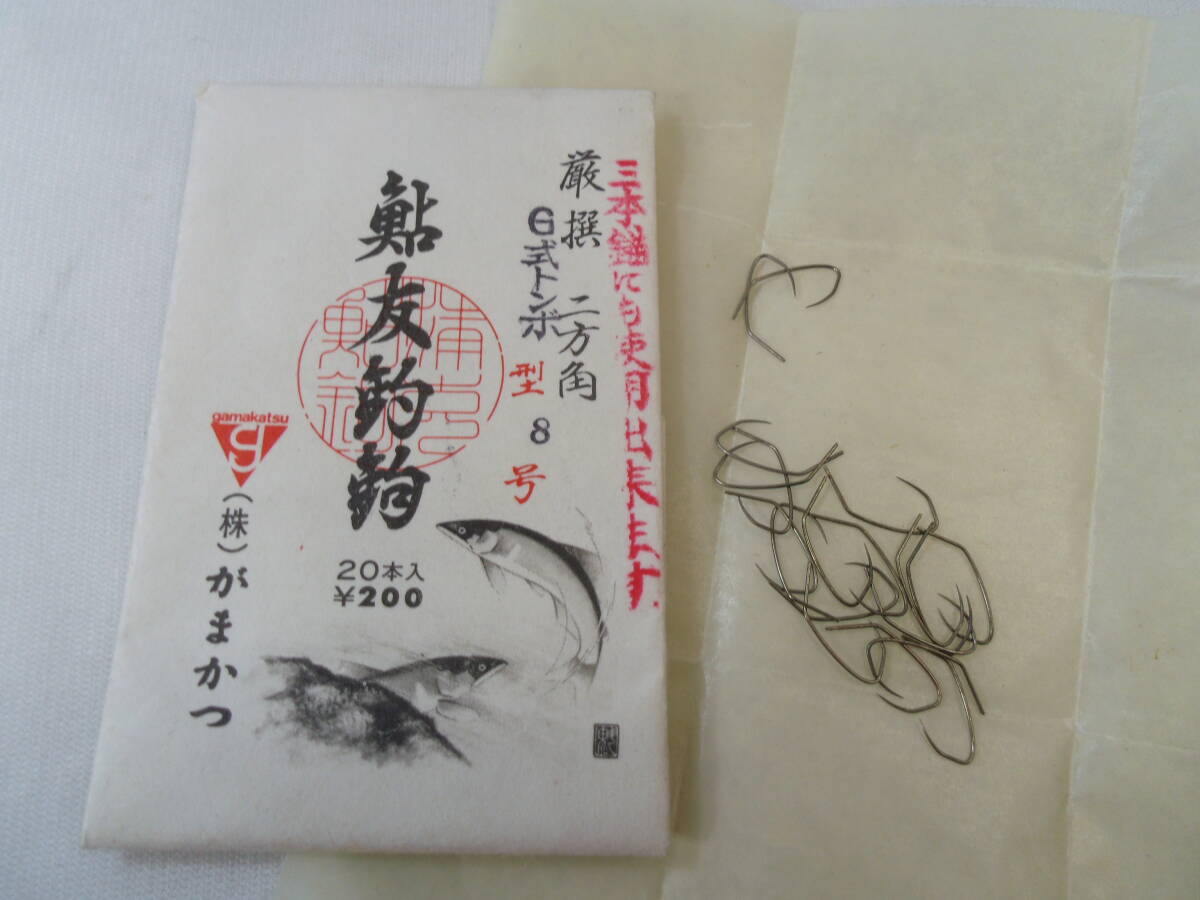 三本錨にも使用出来ます
厳撰 二方角
G式トンボ
型 8 号
鮎友釣鈎
20本入
¥200
gamakatsu
g
(株)がまかつ